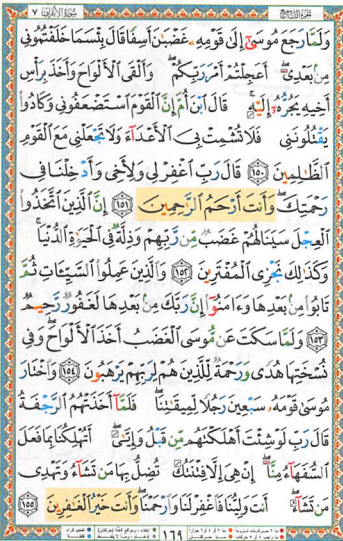 الجزء التاسع سورة الأعراف ٧
وَلَمَّا رَجَعَ مُوسَىٰٓ إِلَىٰ قَوْمِهِۦ غَضْبَٰنَ أَسِفًا قَالَ بِئْسَمَا خَلَفْتُمُونِى
مِنۢ بَعْدِىٓ ۖ أَعَجِلْتُمْ أَمْرَ رَبِّكُمْ ۖ وَأَلْقَى ٱلْأَلْوَاحَ وَأَخَذَ بِرَأْسِ
أَخِيهِ يَجُرُّهُۥٓ إِلَيْهِ ۚ قَالَ ٱبْنَ أُمَّ إِنَّ ٱلْقَوْمَ ٱسْتَضْعَفُونِى وَكَادُوا۟
يَقْتُلُونَنِى فَلَا تُشْمِتْ بِىَ ٱلْأَعْدَآءَ وَلَا تَجْعَلْنِى مَعَ ٱلْقَوْمِ
ٱلظَّٰلِمِينَ ١٥٠ قَالَ رَبِّ ٱغْفِرْ لِى وَلِأَخِى وَأَدْخِلْنَا فِى
رَحْمَتِكَ ۖ وَأَنتَ أَرْحَمُ ٱلرَّٰحِمِينَ ١٥١ إِنَّ ٱلَّذِينَ ٱتَّخَذُوا۟
ٱلْعِجْلَ سَيَنَالُهُمْ غَضَبٌ مِّن رَّبِّهِمْ وَذِلَّةٌ فِى ٱلْحَيَوٰةِ ٱلدُّنْيَا ۚ
وَكَذَٰلِكَ نَجْزِى ٱلْمُفْتَرِينَ ١٥٢ وَٱلَّذِينَ عَمِلُوا۟ ٱلسَّيِّـَٔاتِ ثُمَّ
تَابُوا۟ مِنۢ بَعْدِهَا وَءَامَنُوٓا۟ إِنَّ رَبَّكَ مِنۢ بَعْدِهَا لَغَفُورٌ رَّحِيمٌ
١٥٣ وَلَمَّا سَكَتَ عَن مُّوسَى ٱلْغَضَبُ أَخَذَ ٱلْأَلْوَاحَ ۖ وَفِى
نُسْخَتِهَا هُدًى وَرَحْمَةٌ لِّلَّذِينَ هُمْ لِرَبِّهِمْ يَرْهَبُونَ ١٥٤ وَٱخْتَارَ
مُوسَىٰ قَوْمَهُۥ سَبْعِينَ رَجُلًا لِّمِيقَٰتِنَا ۖ فَلَمَّآ أَخَذَتْهُمُ ٱلرَّجْفَةُ
قَالَ رَبِّ لَوْ شِئْتَ أَهْلَكْتَهُم مِّن قَبْلُ وَإِيَّٰىَ ۖ أَتُهْلِكُنَا بِمَا فَعَلَ
ٱلسُّفَهَآءُ مِنَّآ ۖ إِنْ هِىَ إِلَّا فِتْنَتُكَ تُضِلُّ بِهَا مَن تَشَآءُ وَتَهْدِى
مَن تَشَآءُ ۖ أَنتَ وَلِيُّنَا فَٱغْفِرْ لَنَا وَٱرْحَمْنَا ۖ وَأَنتَ خَيْرُ ٱلْغَٰفِرِينَ ١٥٥
١٦٩